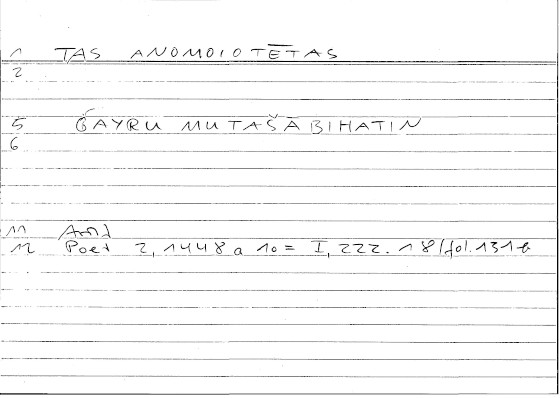 1 TAS ANOMOIOTĒTAS
2
5 ĠAYRU MUTAŠĀBIHATIN
6
11
12 Poet 2, 1448 a 10 = I, 222. 18/fol. 131b